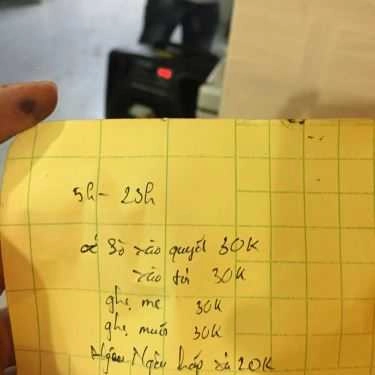 5h - 23h
Sò xào quyết 30K
xào tỏi 30K
ghẹ me 30K
ghẹ muối 30K
Ngêu hấp sả 20K